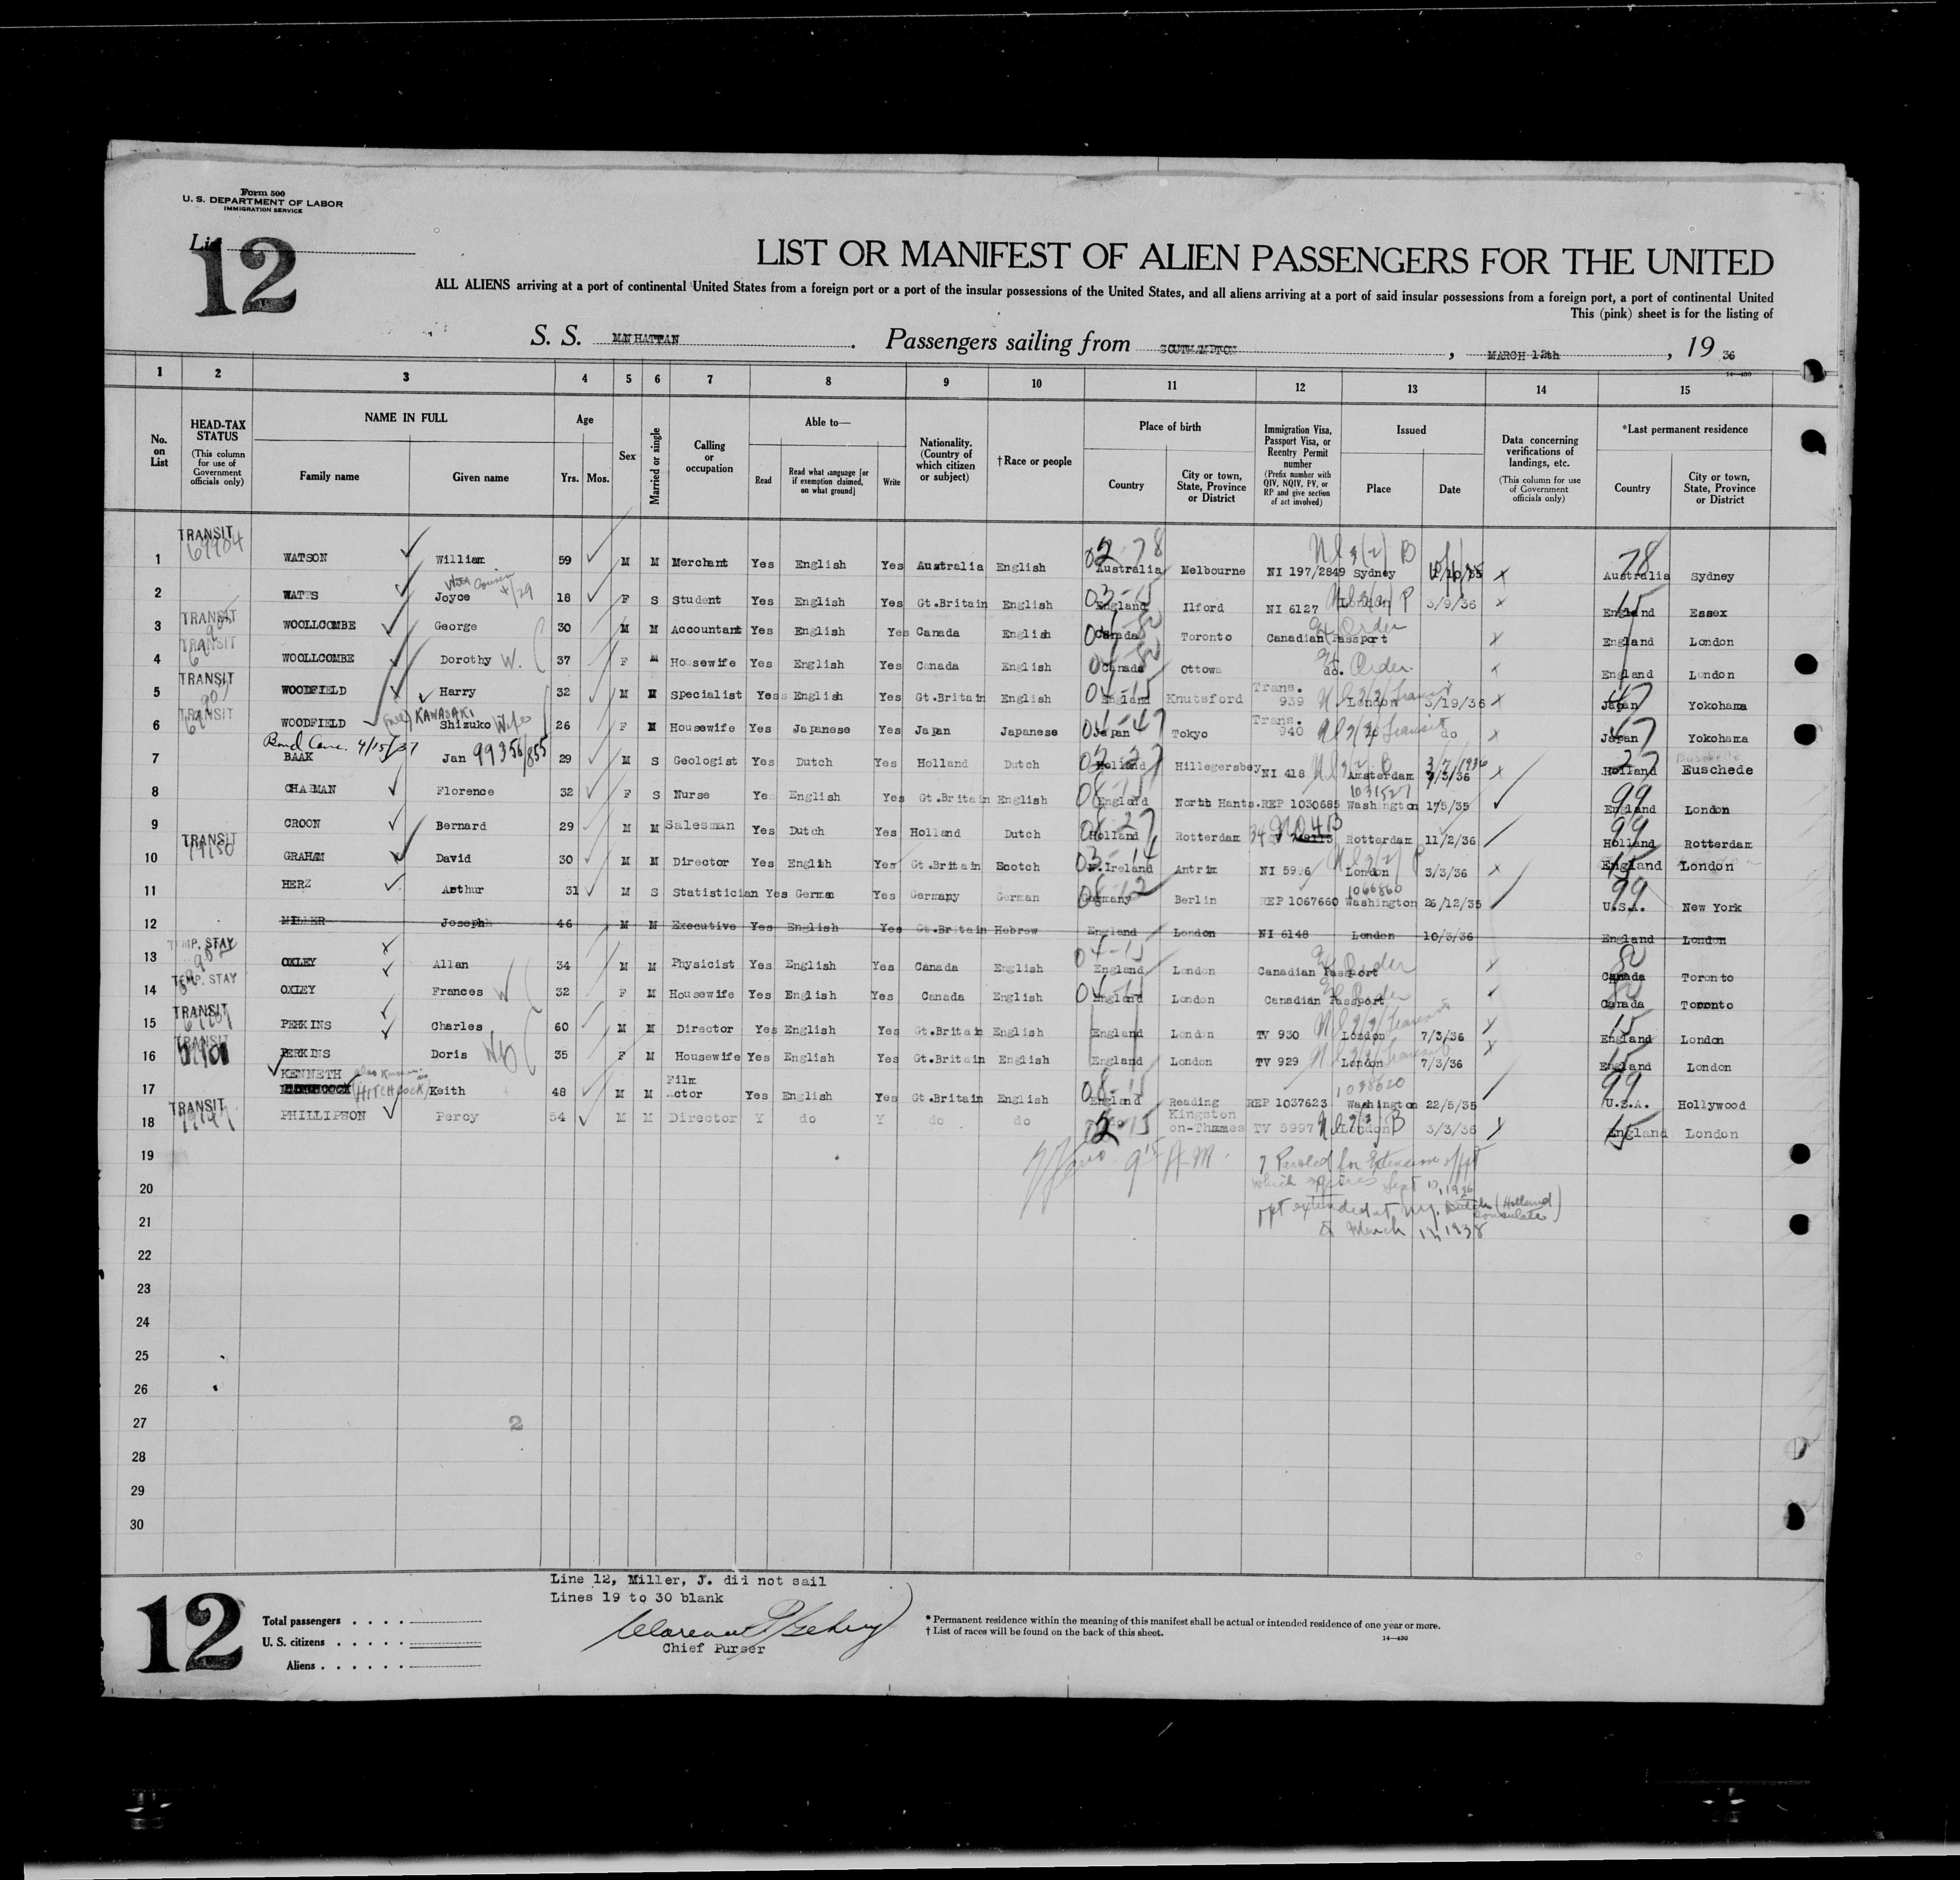 Form 500
U. S. DEPARTMENT OF LABOR
IMMIGRATION SERVICE
List
12
LIST OR MANIFEST OF ALIEN PASSENGERS FOR THE UNITED
ALL ALIENS arriving at a port of continental United States from a foreign port or a port of the insular possessions of the United States, and all aliens arriving at a port of said insular possessions from a foreign port, a port of continental United
This (pink) sheet is for the listing of
S. S. MANHATTAN. Passengers sailing from SOUTHAMPTON, MARCH 12th, 19 36
14—430
1 2 3 4 5 6 7 8 9 10 11 12 13 14 15
No. on List
HEAD-TAX STATUS (This column for use of Government officials only)
NAME IN FULL
Family name Given name
Age
Yrs. Mos.
Sex
Married or single
Calling or occupation
Able to—
Read Read what language [or if exemption claimed, on what ground] Write
Nationality. (Country of which citizen or subject)
†Race or people
Place of birth
Country City or town, State, Province or District
Immigration Visa, Passport Visa, or Reentry Permit number (Prefix number with QIV, NQIV, PV, or RP and give section of act involved)
Issued
Place Date
Data concerning verifications of landings, etc. (This column for use of Government officials only)
*Last permanent residence
Country City or town, State, Province or District
TRANSIT 69904
1 WATSON William 59 M M Merchant Yes English Yes Australia English Australia Melbourne NI 197/2849 Sydney Australia Sydney
2 WATTS Joyce 18 F S Student Yes English Yes Gt.Britain English England Ilford NI 6127 London 3/9/36 England Essex
TRANSIT
3 WOOLLCOMBE George 30 M M Accountant Yes English Yes Canada English Canada Toronto Canadian Passport England London
TRANSIT
4 WOOLLCOMBE Dorothy W. 37 F M Housewife Yes English Yes Canada English Canada Ottowa do. England London
TRANSIT
5 WOODFIELD Harry 32 M M Specialist Yes English Yes Gt.Britain English England Knutsford Trans. 939 London 3/19/36 Japan Yokohama
TRANSIT
6 WOODFIELD (nee) KAWASAKI Shizuko Wife 26 F M Housewife Yes Japanese Yes Japan Japanese Japan Tokyo Trans. 940 do Japan Yokohama
Bond Canc. 4/15/37
7 BAAK Jan 99356/855 29 M S Geologist Yes Dutch Yes Holland Dutch Holland Hillegersbey NI 418 Amsterdam Holland Euschede
8 CHAPMAN Florence 32 F S Nurse Yes English Yes Gt.Britain English England North Hants. REP 1030685 Washington 17/5/35 England London
9 CROON Bernard 29 M M Salesman Yes Dutch Yes Holland Dutch Holland Rotterdam Rotterdam 11/2/36 Holland Rotterdam
TRANSIT
10 GRAHAM David 30 M M Director Yes English Yes Gt.Britain Scotch N.Ireland Antrim NI 5996 London 3/3/36 England London
11 HERZ Arthur 31 M S Statistician Yes German Yes Germany German Germany Berlin REP 1067660 Washington 26/12/35 U.S.A. New York
12 MILLER Joseph 46 M M Executive Yes English Yes Gt.Britain Hebrew England London NI 6148 London 10/3/36 England London
TEMP. STAY
13 OXLEY Allan 34 M M Physicist Yes English Yes Canada English England London Canadian Passport Canada Toronto
TEMP. STAY
14 OXLEY Frances W 32 F M Housewife Yes English Yes Canada English England London Canadian Passport Canada Toronto
TRANSIT
15 PERKINS Charles 60 M M Director Yes English Yes Gt.Britain English England London TV 930 London 7/3/36 England London
TRANSIT
16 PERKINS Doris 35 F M Housewife Yes English Yes Gt.Britain English England London TV 929 London 7/3/36 England London
17 KENNETH (HITCHCOCK) Keith 48 M M Film Actor Yes English Yes Gt.Britain English England Reading REP 1037623 Washington 22/5/35 U.S.A. Hollywood
TRANSIT
18 PHILLIPSON Percy 54 M M Director Y do Y do do Kingston on-Thames TV 5997 London 3/3/36 England London
19 9 15 A.M. 7 Paroled for Extension of ppt
20 which expires Sept
21 ppt extended at N.Y. Dutch (Holland) consulate
to March 1938
22
23
24
25
26
27 2
28
29
30
12
Line 12, Miller, J. did not sail
Lines 19 to 30 blank
Chief Purser
Total passengers . . . .
U. S. citizens . . . . .
Aliens . . . . . .
* Permanent residence within the meaning of this manifest shall be actual or intended residence of one year or more.
† List of races will be found on the back of this sheet.
14—430